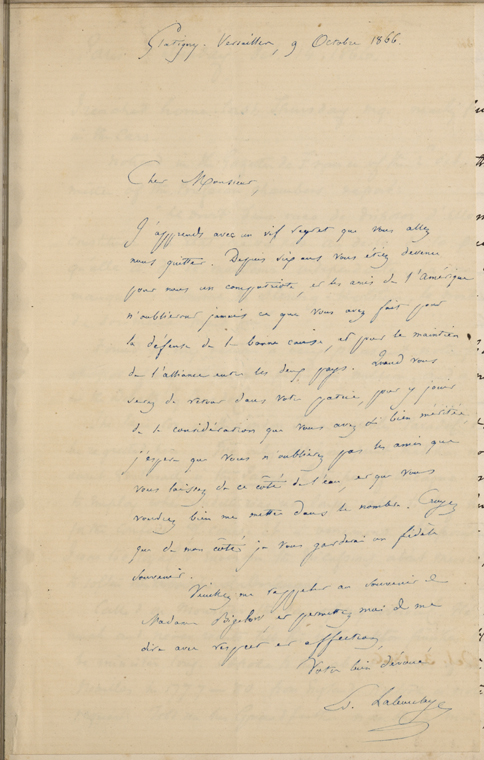 Glatigny-Versailles, 9 Octobre 1866.
Cher Monsieur,
J'apprends avec un vif regret que vous allez
nous quitter. Depuis six ans vous étiez devenu
pour nous un compatriote, et les amis de l'Amérique
n'oublieront jamais ce que vous avez fait pour
la défense de la bonne cause, et pour le maintien
de l'alliance entre les deux pays. Quand vous
serez de retour dans votre patrie, pour y jouir
de la considération que vous avez si bien méritée,
j'espère que vous n'oublierez pas les amis que
vous laissez de ce côté de l'eau, et que vous
voudrez bien me mettre dans le nombre. Croyez
que de mon côté je vous garderai un fidèle
souvenir.
Veuillez me rappeler au souvenir de
Madame Bigelow et permettez moi de me
dire avec respect et affection,
Votre bien dévoué
Ed. Laboulaye